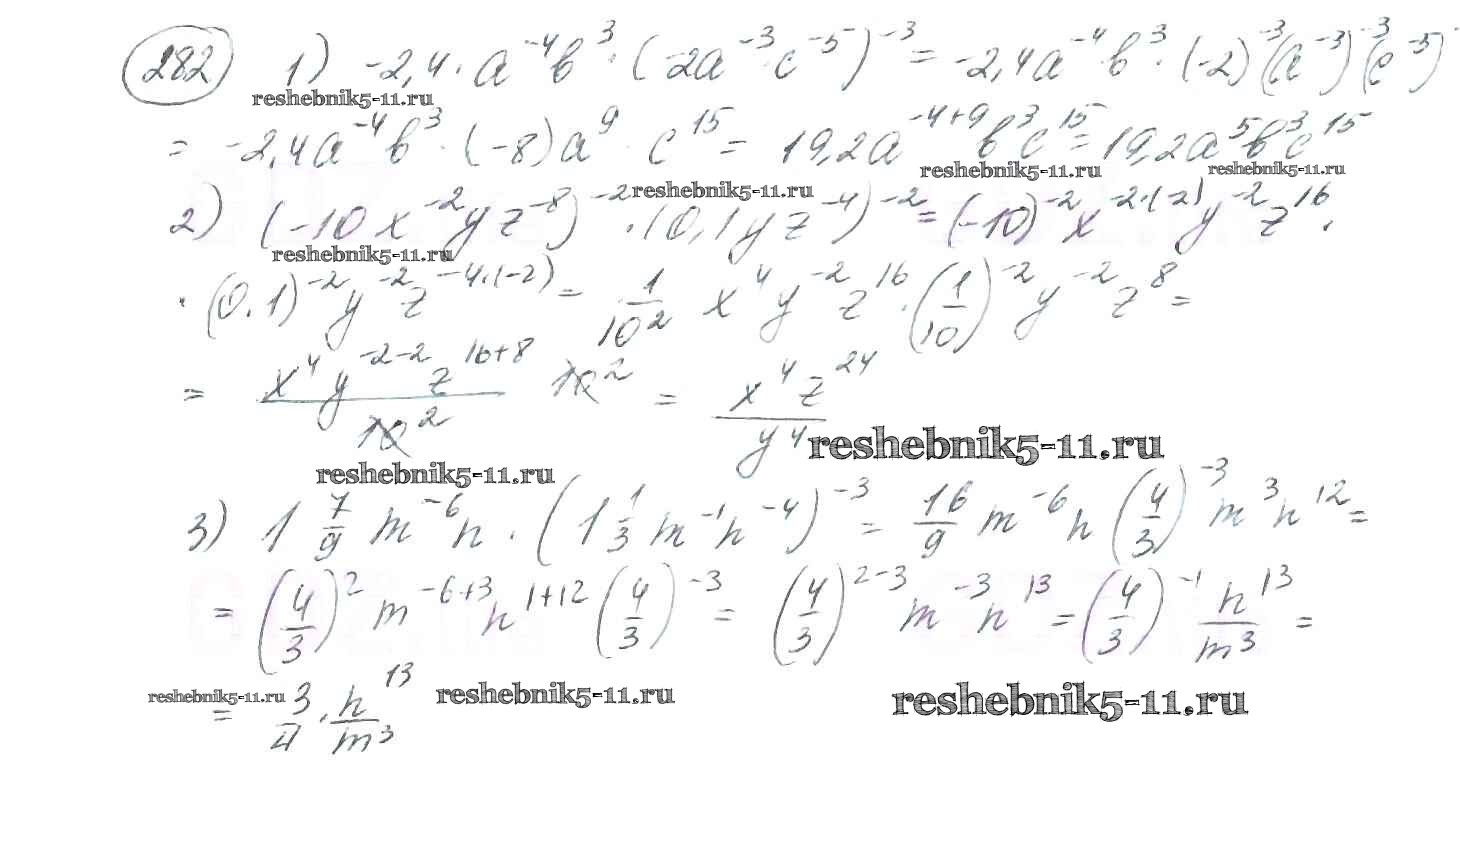 282 1) -2,4·a⁻⁴b³·(-2a⁻³·c⁻⁵)⁻³ = -2,4a⁻⁴·b³·(-2)⁻³(a⁻³)⁻³(c⁻⁵)⁻
reshebnik5-11.ru
= -2,4a⁻⁴b³·(-8)a⁹·c¹⁵ = 19,2a⁻⁴⁺⁹b³c¹⁵ = 19,2a⁵b³c¹⁵
reshebnik5-11.ru reshebnik5-11.ru reshebnik5-11.ru
2) (-10x⁻²yz⁻⁸)⁻²·(0,1yz⁻⁴)⁻² = (-10)⁻²x⁻²·⁽⁻²⁾y⁻²z¹⁶·
reshebnik5-11.ru
·(0,1)⁻²y⁻²z⁻⁴·⁽⁻²⁾ = 1/10² x⁴y⁻²z¹⁶·(1/10)⁻²y⁻²z⁸ =
= x⁴y⁻²⁻²z¹⁶⁺⁸/10² 10² = x⁴z²⁴/y⁴
reshebnik5-11.ru
reshebnik5-11.ru
3) 1 7/9 m⁻⁶n·(1 1/3 m⁻¹n⁻⁴)⁻³ = 16/9 m⁻⁶n(4/3)⁻³m³n¹² =
= (4/3)²m⁻⁶⁺³n¹⁺¹²(4/3)⁻³ = (4/3)²⁻³m⁻³n¹³ = (4/3)⁻¹ n¹³/m³ =
reshebnik5-11.ru reshebnik5-11.ru reshebnik5-11.ru
= 3/4·n¹³/m³